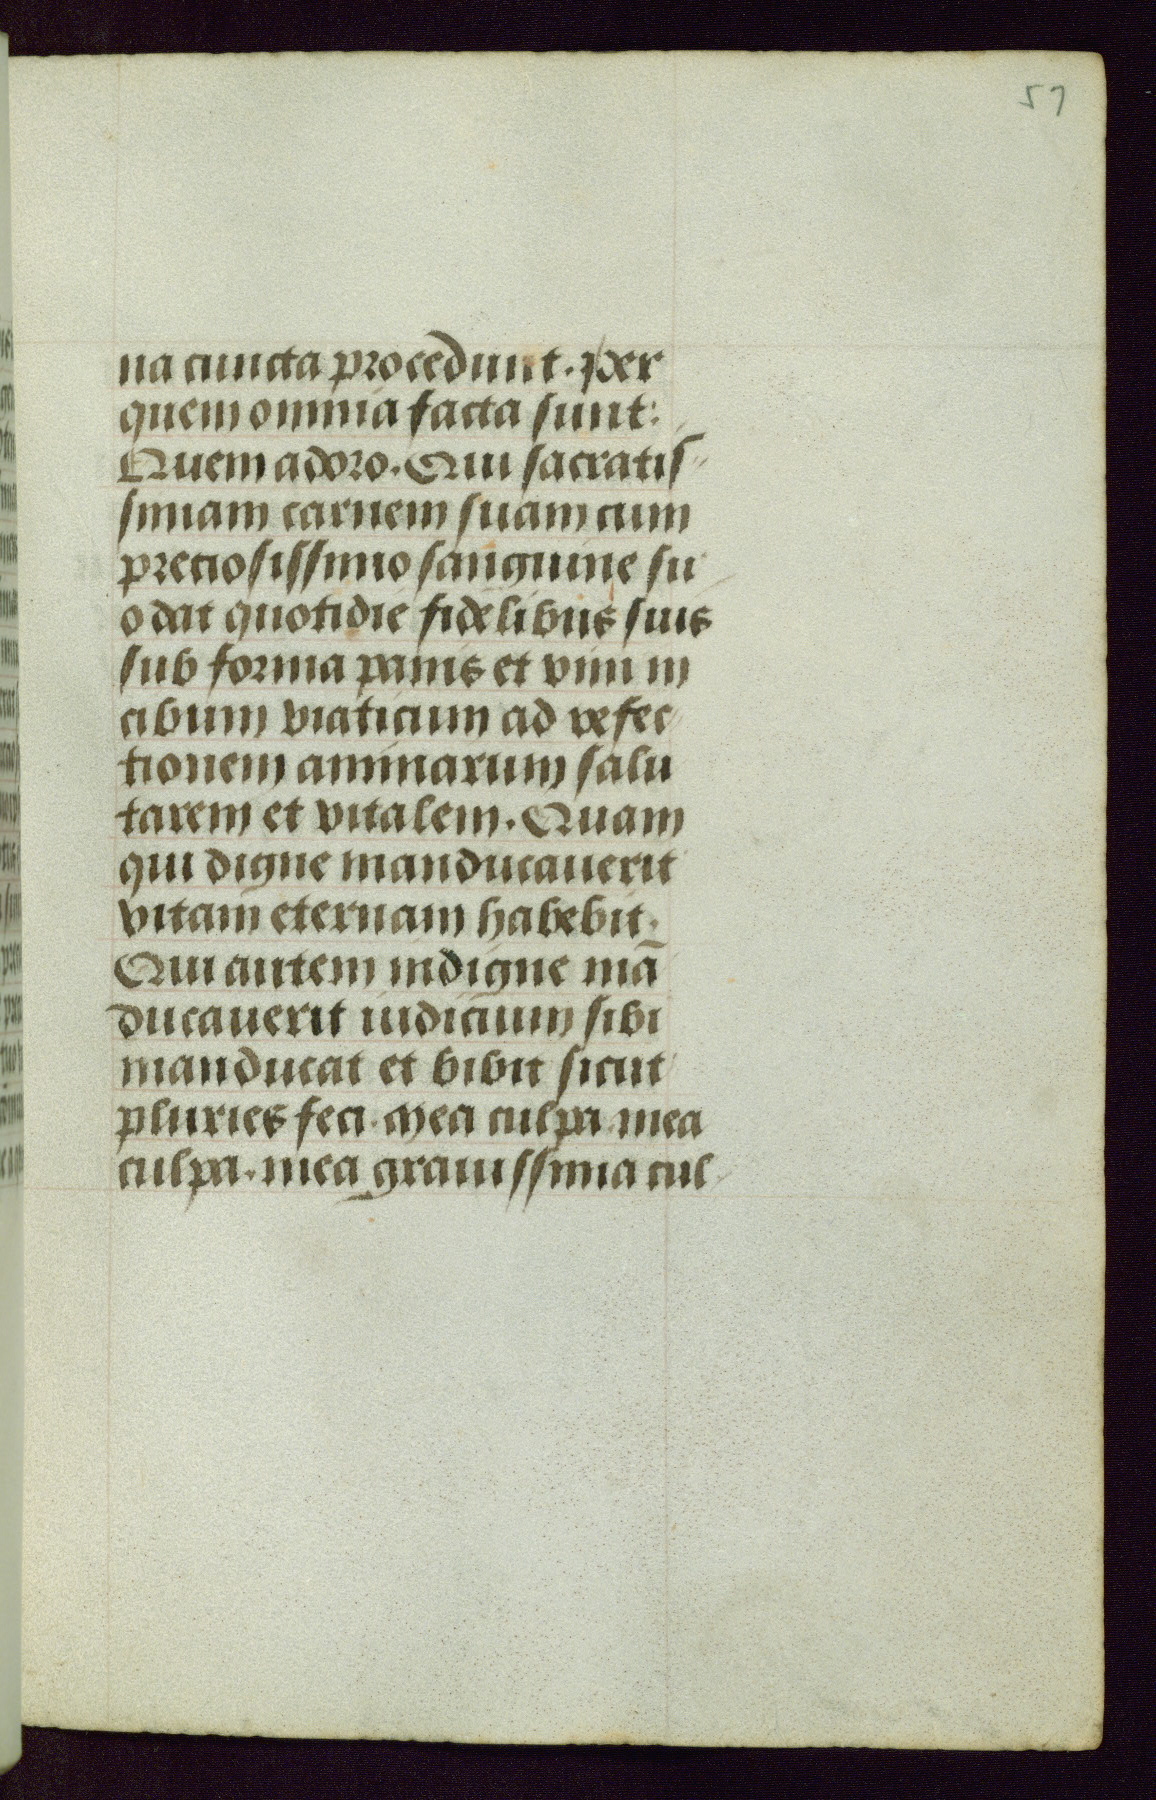 57
na cuncta procedunt. Per
quem omnia facta sunt:
Quem adoro. Qui sacratis
simam carnem suam cum
preciosissimo sanguine su
o dat quotidie fidelibus suis
sub forma panis et vini in
cibum viaticum ad refec
tionem animarum salu
tarem et vitalem. Quam
qui digne manducauerit
vitam eternam habebit.
Qui autem indigne mā
ducauerit iudicium sibi
manducat et bibit sicut
pluries feci. Mea culpa. mea
culpa. mea grauissima cul